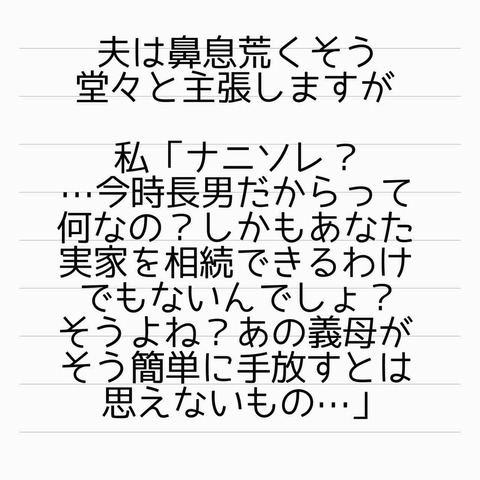 夫は鼻息荒くそう
堂々と主張しますが
私「ナニソレ？
…今時長男だからって
何なの？しかもあなた
実家を相続できるわけ
でもないんでしょ？
そうよね？あの義母が
そう簡単に手放すとは
思えないもの…」